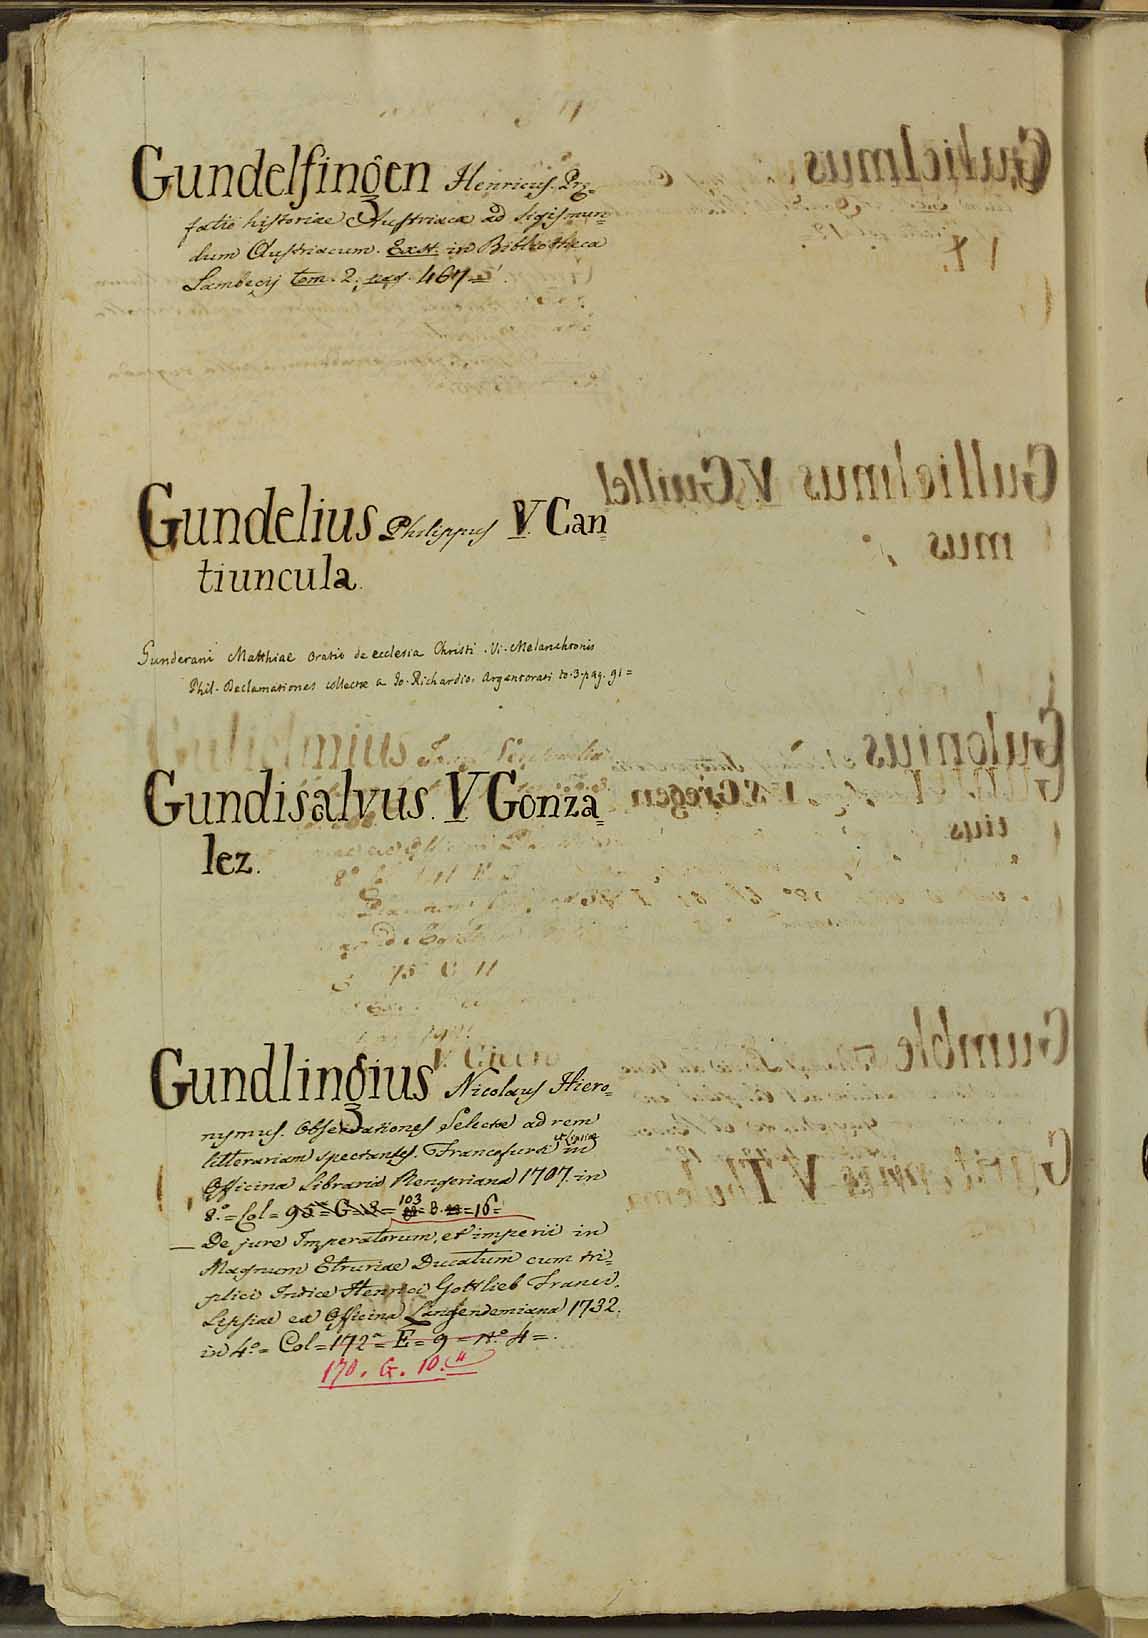 Gundelfingen Henricus. Præ=
fatio historiae Austriacæ ad Sigismun=
dum Austriacum. Exst. in Bibliotheca
Lambecij tom. 2. pag. 467=
Gundelius Philippus V. Can=
tiuncula.
Gunderani Matthiae Oratio de ecclesia Christi. Vi. Melanchtonis
Phil. Declamationes collectæ a Jo. Richardio. Argentorati to. 3. pag. 91=
Gundisalvus. V Gonza=
lez.
Gundlingius Nicolaus Hiero=
nymus. Observationes Selectæ ad rem
litterariam spectantes. Francofurti et Lipsiæ in
Officina Libraria Rengeriana 1707. in
8.º = Col = 95 = G = 8 = 103 = 8. = 16=
— De jure Imperatorum, et imperii in
Magnum Etruriae Ducatum cum tri=
plici Indice Henrici Gottlieb Franci.
Lipsiae ex Officina Langenhemiana 1732.
in 4.º = Col = 172ª = E = 9 = n.º 4 =.
170. G. 10.